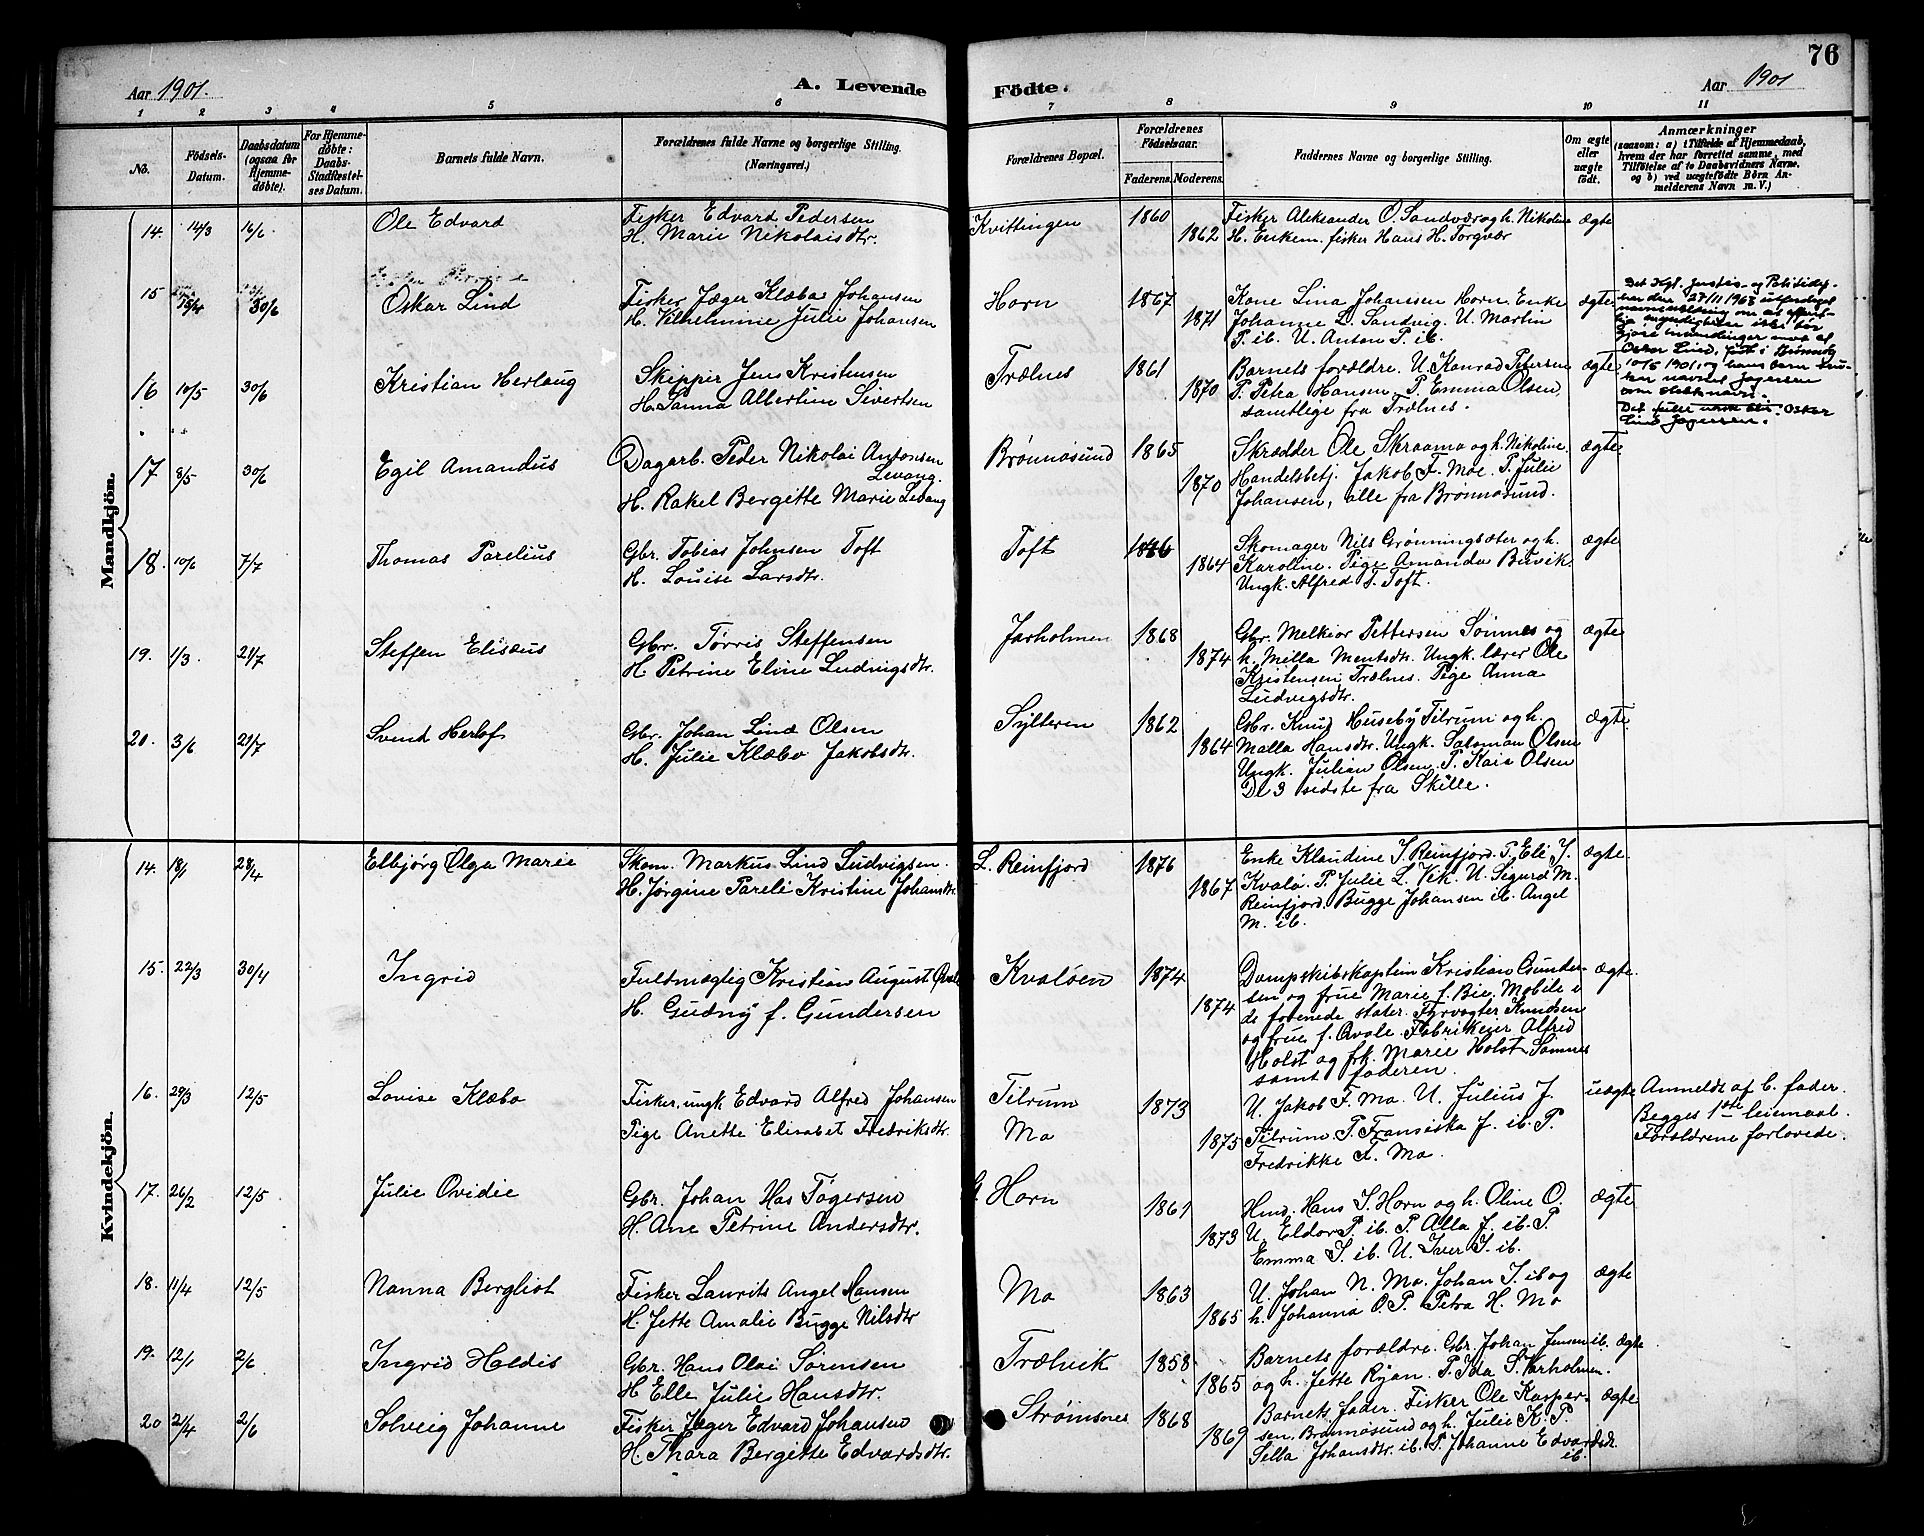 76
Aar 1901.
A. Levende Födte.
Aar 1901
1 2 3 4 5 6 7 8 9 10 11
No.
Födsels-Datum.
Daabsdatum (ogsaa for Hjemme-døbte).
For Hjemme-døbte: Daabs-Stadfæstel-ses Datum.
Barnets fulde Navn.
Forældrenes fulde Navne og borgerlige Stilling. (Næringsvei.)
Forældrenes Bopæl.
Forældrenes Födselsaar.
Faderens. Moderens.
Faddernes Navne og borgerlige Stilling.
Om ægte eller uægte födt.
Anmærkninger
(saasom: a) i Tilfælde af Hjemmedaab, hvem der har forrettet samme, med Tilföielse af to Daabsvidners Navne, og b) ved uægtefödte Börn An-melderens Navn m. V.)
Mandkjön.
14. 14/3 16/6 Ole Edvard
Fisker Edvard Pedersen
H. Marie Nikolaisdtr.
Kvittingen 1860 1862
Fisker Aleksander O. Sandvær og h. Nikoline
H. Enkem. fisker Hans H. Torgvær
ægte
15 15/4 30/6 Oskar Lind
Fisker Jæger Klæbo Johansen
H. Vilhelmine Julie Johansen
Horn 1867 1871
Kone Lina Johansen Horn. Enke
Johanne L. Sandvig. U. Martin
P. ib. U. Anton P. ib.
ægte
Det Kgl. Justis- og Politide-
har den 27/11 1963 utferdiget
navnemelding om at offent-
lige myndigheter ikke har
innvendinger mot at
Oskar Lind, født i Brønnøy
10/5 1901, og hans barn bru-
ker navnet Jægersen
som slektsnavn.
Det fulle navn blir: Oskar
Lind Jægersen.
16 10/5 30/6 Kristian Herlaug
Skipper Jens Kristensen
H. Sanna Albertine Sivertsen
Trælnes 1861 1870
Barnets forældre. U. Konrad Petersen
P. Petra Hansen, P. Emma Olsen,
samtlege fra Trælnes.
ægte
17 8/5 30/6 Egil Amandus
Dagarb. Peder Nikolai Antonsen
Levang.
H. Rakel Bergitte Marie Levang
Brønnøsund 1865 1870
Skrædder Ole Skraamo og h. Nikoline
Handelsbetj. Jakob F. Moe. P. Julie
Johansen, alle fra Brønnøsund.
ægte
18. 10/6 7/7 Thomas Parelius
Gbr. Tobias Johnsen Toft
H. Louise Larsdtr.
Toft 1864
Skomager Nils Grønningsæter og h.
Karoline. Pige Amanda Birvik
Ungk. Alfred T. Toft.
ægte
19. 1/3. 21/7 Steffen Elisæus
Gbr. Tørris Steffensen
H. Petrine Eline Ludvigsdtr.
Jarholmen 1868 1874
Gbr. Melkior Pettersen Sømnes og
h. Milla Mentsdtr. Ungk. lærer Ole
Kristensen Trælnes. Pige Anna
Ludvigsdtr.
ægte
20. 3/6 21/7 Svend Herlof
Gbr. Johan Lind Olsen
H. Julie Klæbo Jakobsdtr.
Sylteren 1862 1864
Gbr. Knud Huseby Tilrum og h.
Malla Hansdtr. Ungk. Salomon Olsen
Ungk. Julian Olsen. P. Kaia Olsen
De 3 sidste fra Skille.
ægte
Kvindekjön.
14. 18/1 28/4 Elbjørg Olga Marie
Skom. Markus Lind Ludvigsen.
H. Jørgine Pareli Kristine Johansdtr
L. Reinfjord 1876 1867
Enke Klaudine J. Reinfjord. P. Eli J.
Kvalø. P. Julie L. Vik. U. Sigurd M.
Reinfjord. Bugge Johansen ib. Angel
M. ib.
ægte.
15. 22/3 30/4 Ingrid
Fuldmægtig Kristian August Qvale
H. Gudny f. Gundersen
Kvaløen 1874 1874
Dampskibskaptein Kristian Gunder-
sen og frue Marie f. Bie, Mobile i
de forenede stater. Fyrvogter Knudsen
og frue f. Qvale. Fabrikeier Alfred
Holst og frk. Marie Holst Sømnes
samt faderen.
ægte.
16. 29/3 12/5 Lovise Klæbo
Fisker, ungk Edvard Alfred Johansen
Pige Anette Elisabet Fredriksdtr.
Tilrum
Mo
1873 1875
U. Jakob F. Mo. U. Julius J.
Tilrum. P. Fransiska J. ib. P.
Fredrikke F. Mo.
uægte
Anmeldt af b. fader.
Begges 1ste leiemaal.
Forældrene forlovede.
17. 26/2 12/5 Julie Ovidie
Gbr. Johan Has Tøgersen
H. Ane Petrine Andersdtr.
Horn 1861 1873
Hmd. Hans S. Horn og h. Oline O.
U. Eldor P. ib. P. Alla J. ib. P.
Emma S. ib. U. Iver I. ib.
ægte
18. 11/4 12/5 Nanna Bergliot
Fisker Laurits Angel Hansen
H. Jette Amalie Bugge Nilsdtr
Mo 1863 1865
U. Johan N. Mo. Johan I. ib og
h. Johanna O. P. Petra H. Mo
ægte
19. 12/1 2/6 Ingrid Haldis
Gbr. Hans Olai Sørensen
H Elle Julie Hansdtr.
Trælvik 1858 1865
Barnets forældre. Gbr. Johan Jensen ib.
og h. Jette Rÿan. P. Ida S. Varholmen.
ægte
20 2/4 2/6 Solveig Johanne
Fisker Jæger Edvard Johansen
H. Thora Bergitte Edvardsdtr.
Strømsnes 1868 1869
Barnets fader. Fisker Ole Kasper-
sen. Brønnøsund og h. Julie K. P.
Sella Johansdtr. ib. P. Johanne Edvardsd.
ib.
ægte